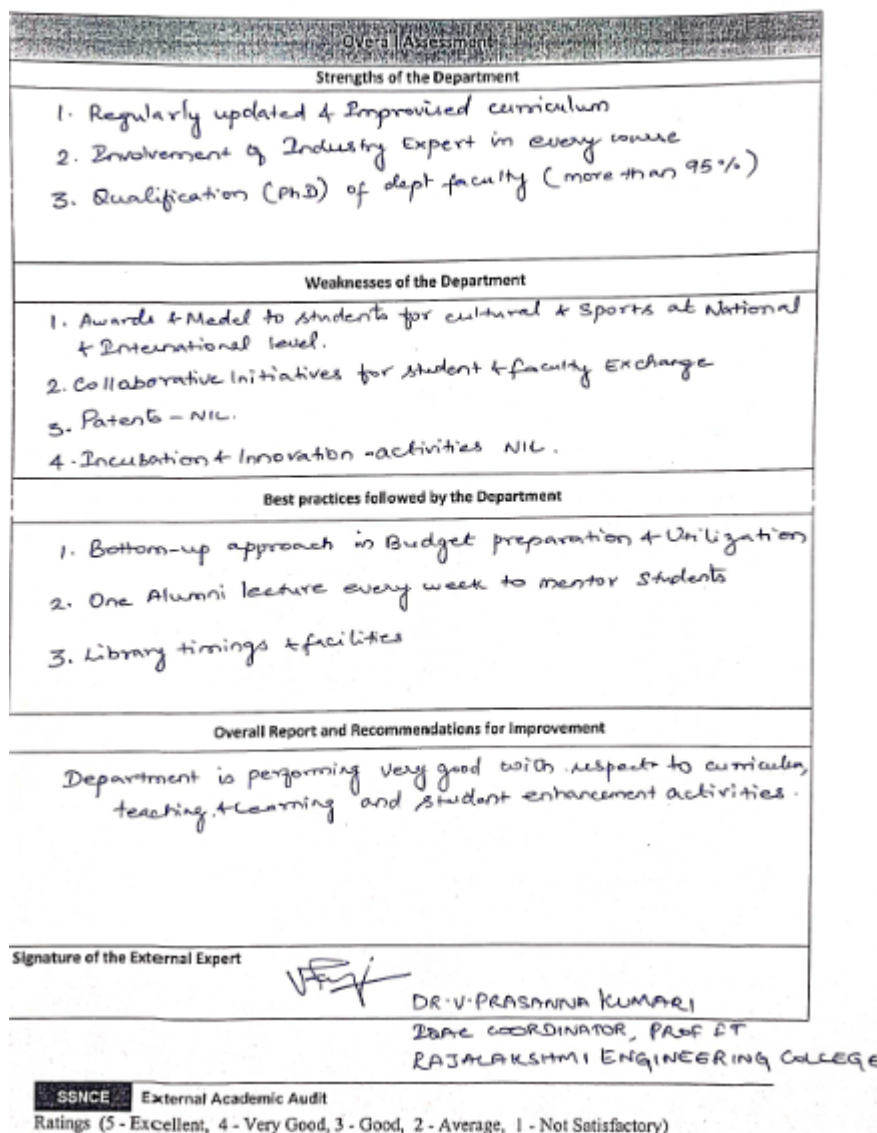 Overall Assessment
Strengths of the Department
1. Regularly updated & Improvised curriculum
2. Involvement of Industry Expert in every course
3. Qualification (PhD) of dept faculty (more than 95%)
Weaknesses of the Department
1. Awards & Medel to students for cultural & Sports at National
& International level.
2. Collaborative Initiatives for student & faculty Exchange
3. Patents - NIL.
4. Incubation & Innovation - activities NIL.
Best practices followed by the Department
1. Bottom-up approach in Budget preparation & Utilization
2. One Alumni lecture every week to mentor Students
3. Library timings & facilities
Overall Report and Recommendations for Improvement
Department is performing very good with respect to
teaching & learning and student enhancement activities.
Signature of the External Expert
DR. V. PRASANNA KUMARI
COORDINATOR, PROF
RAJALAKSHMI ENGINEERING COLLEGE
SSNCE External Academic Audit
Ratings (5 - Excellent, 4 - Very Good, 3 - Good, 2 - Average, 1 - Not Satisfactory)